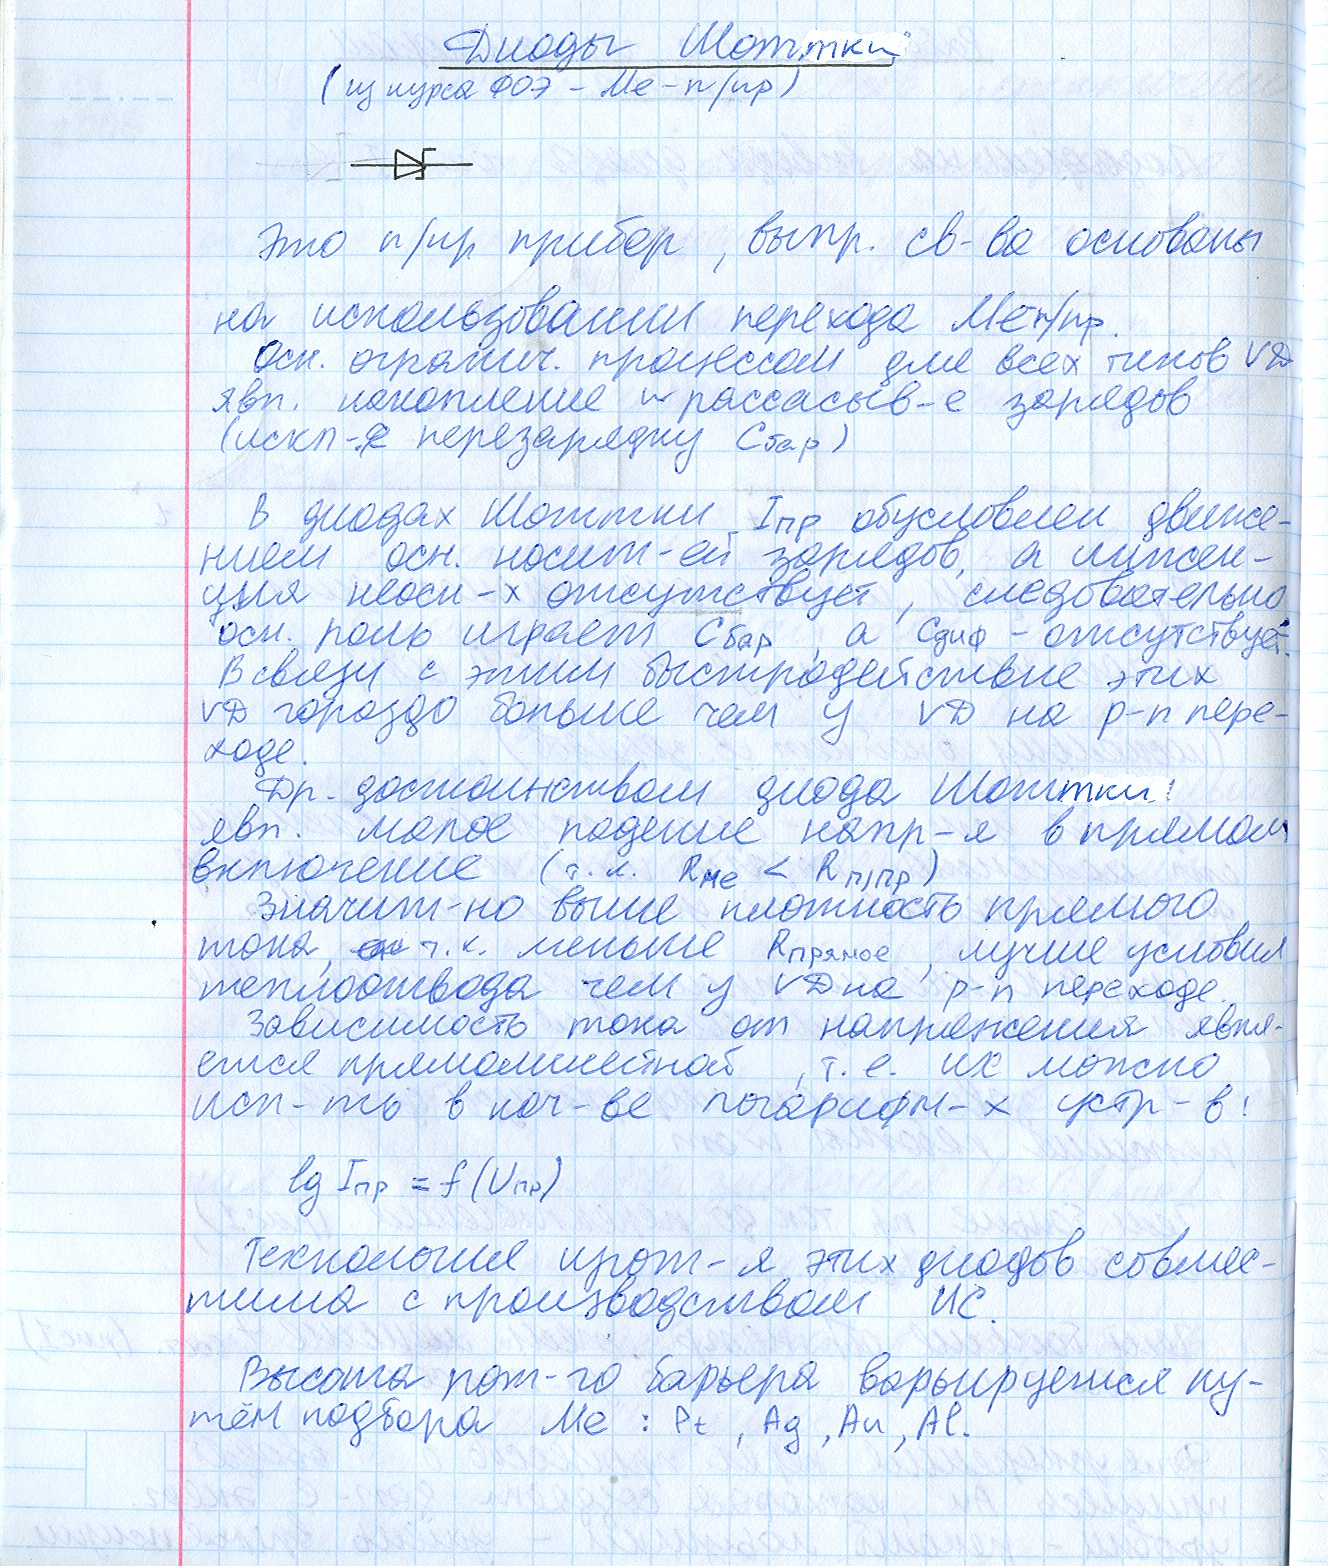 Диоды Шоттки
(из курса ФОЭ - Ме - п/пр)
Это п/пр прибор, выпр. св-ва основаны
на использовании перехода Ме п/пр.
Осн. огранич. процессом для всех типов VD
явл. накопление и рассасыв-е зарядов
(искл-я перезарядку Сбар)
В диодах Шоттки Iпр обусловлен движе-
нием осн. носит-ей зарядов, а инжек-
ция неосн-х отсутствует, следовательно
осн. роль играет Сбар, а Сдиф - отсутствует.
В связи с этим быстродействие этих
VD гораздо больше чем у VD на p-n пере-
ходе.
Др. достоинством диода Шоттки
явл. малое падение напр-я в прямом
включение (т.к. RМе < Rп/пр)
Значит-но выше плотность прямого
тока, т.к. меньше Rпрямое, лучше условия
теплоотвода чем у VD на p-n переходе.
Зависимость тока от напряжения явля-
ется прямолинейной, т.е. их можно
исп-ть в кач-ве логарифм-х устр-в!
lg Iпр = f(Uпр)
Технология изгот-я этих диодов совмес-
тима с производством ИС.
Высота пот-го барьера варьируется пу-
тём подбора Ме : Pt, Ag, Au, Al.